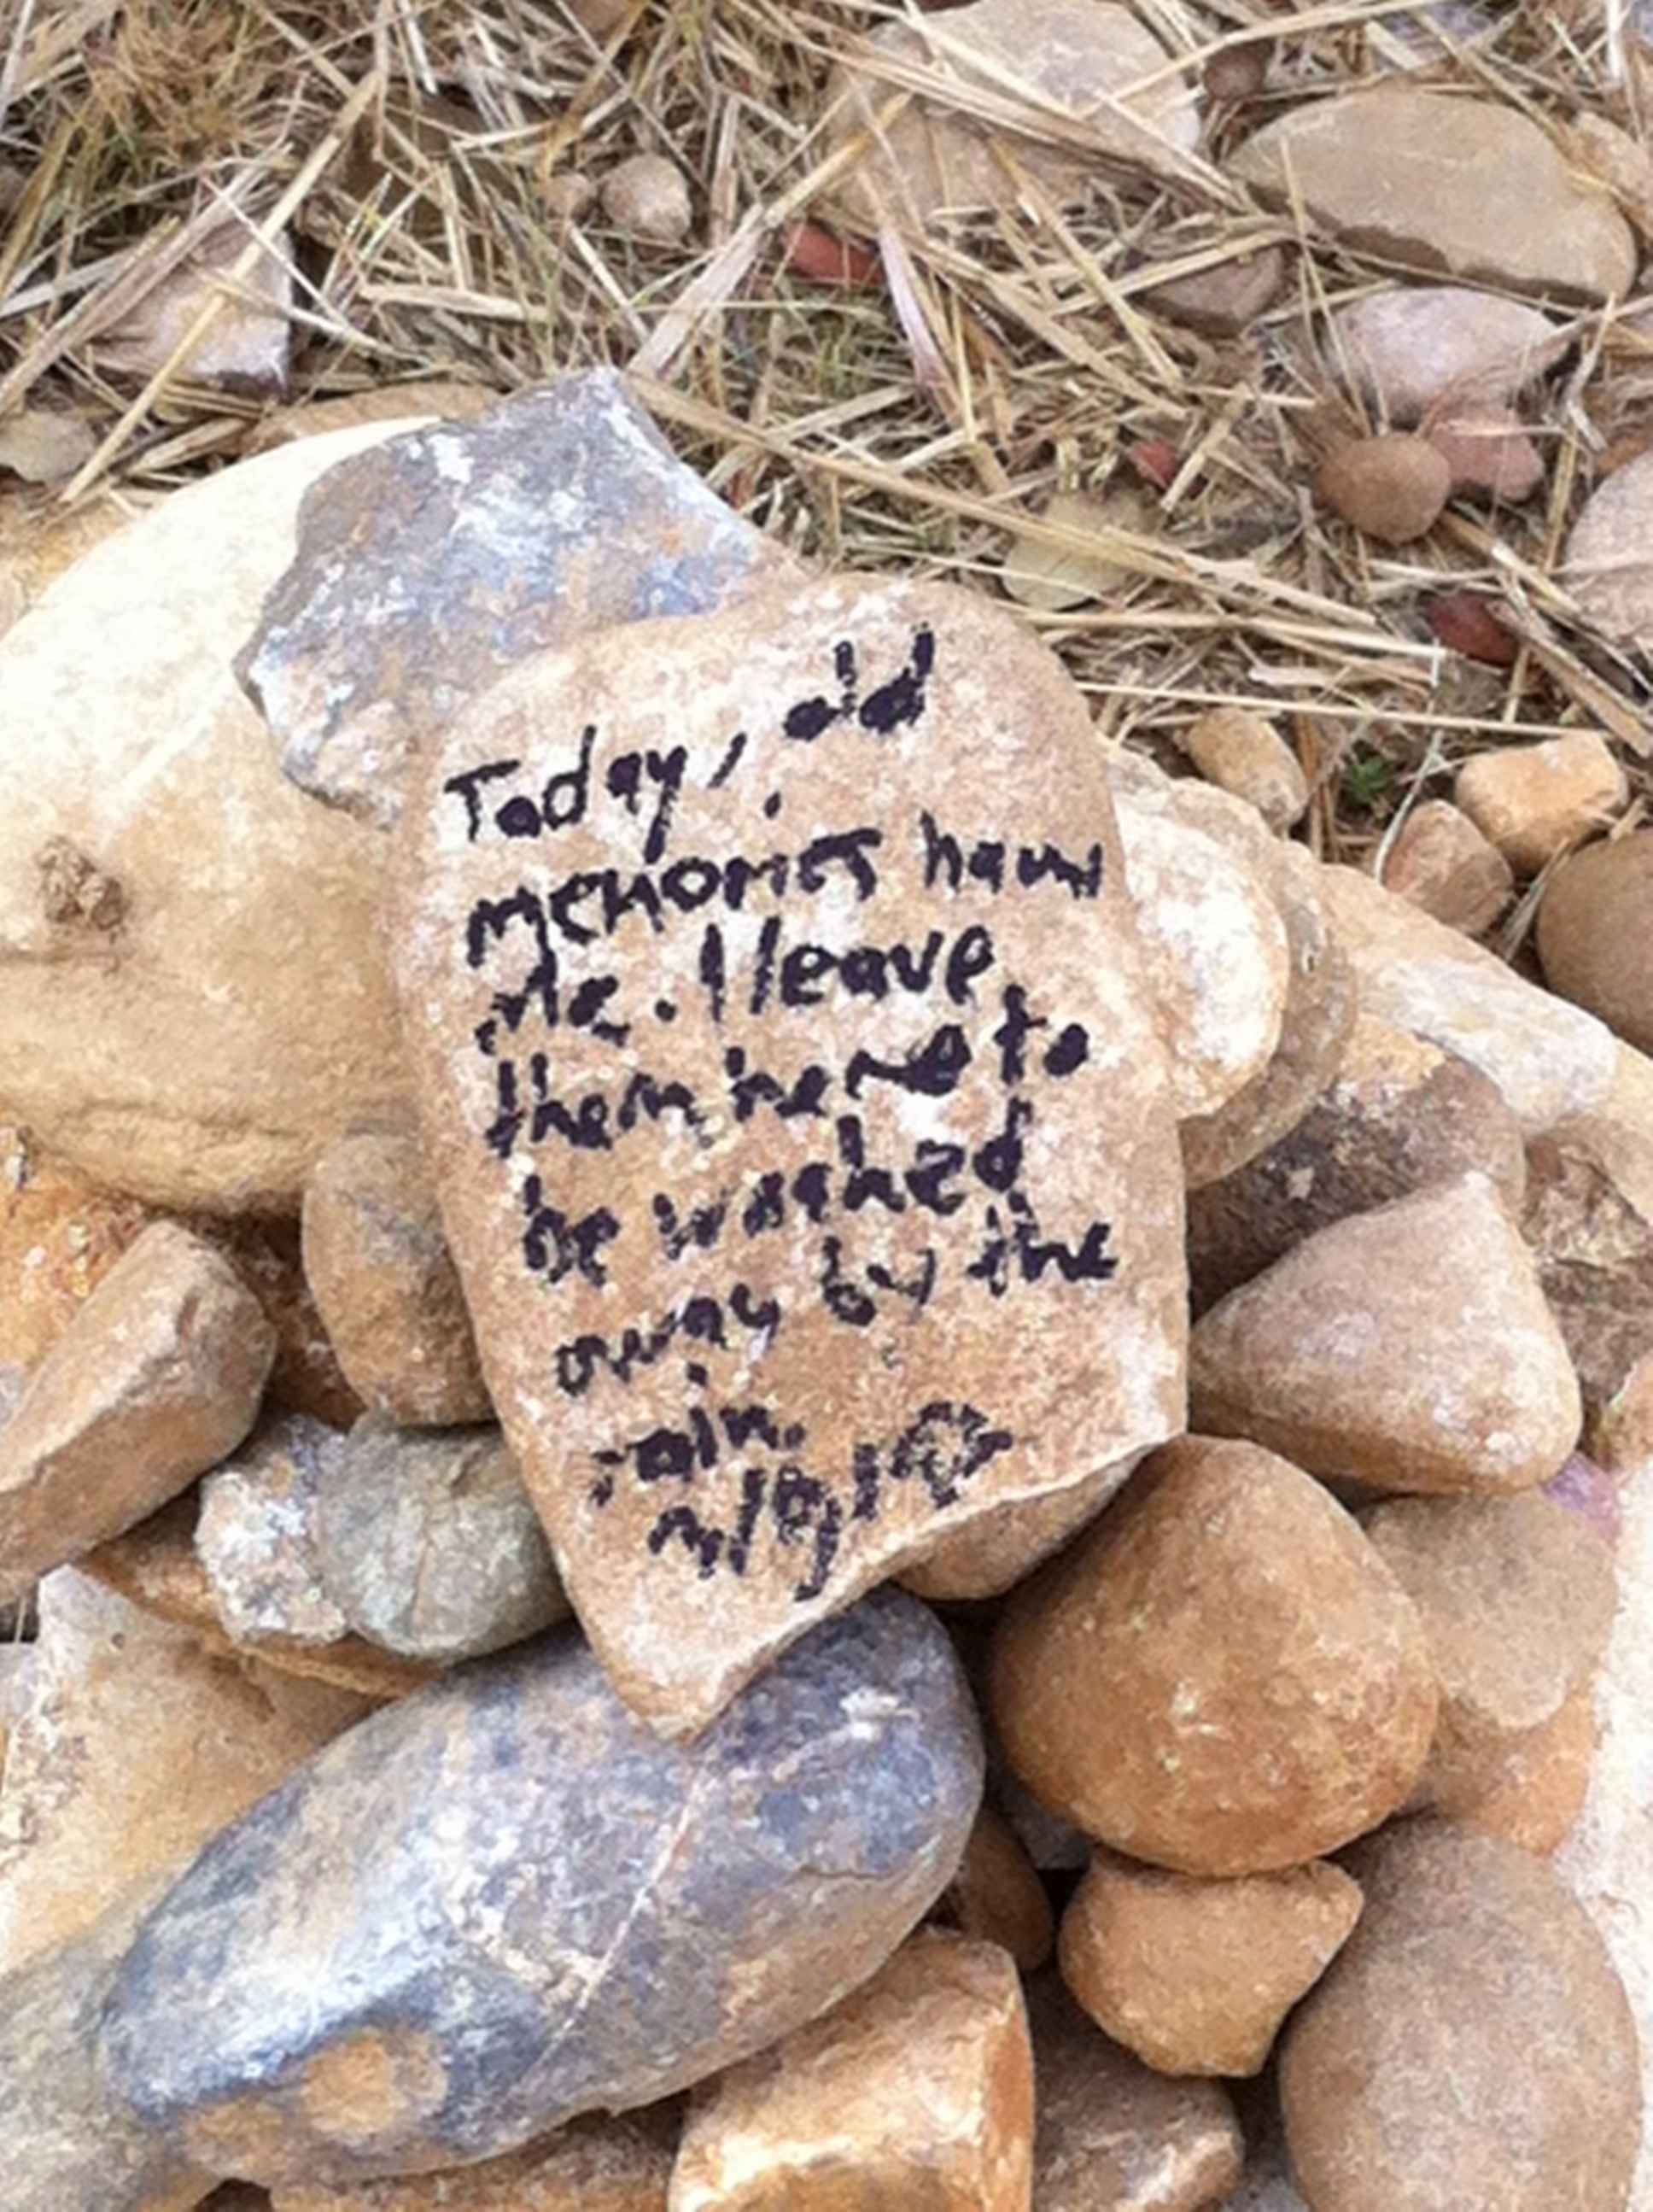 Today, old
memories haunt
me. I leave
them here to
be washed
away by the
rain.